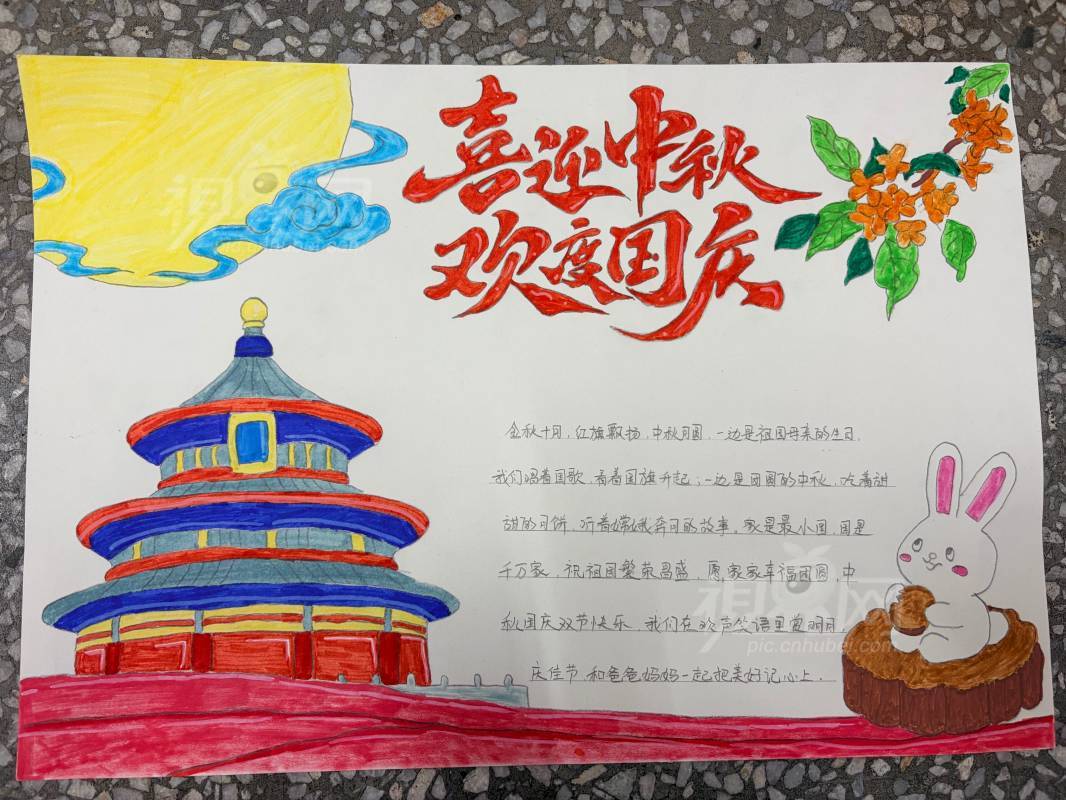 喜迎中秋
欢度国庆
金秋十月，红旗飘扬，中秋月圆，一边是祖国母亲的生日，
我们唱着国歌，看着国旗升起；一边是团圆的中秋，吃着甜
甜的月饼，听着嫦娥奔月的故事。家是最小国，国是
千万家，祝祖国繁荣昌盛，愿家家幸福团圆，中
秋国庆双节快乐，我们在欢声笑语里赏明月，
庆佳节，和爸爸妈妈一起把美好记心上．
视界网
视界网
pic.cnhubei.com